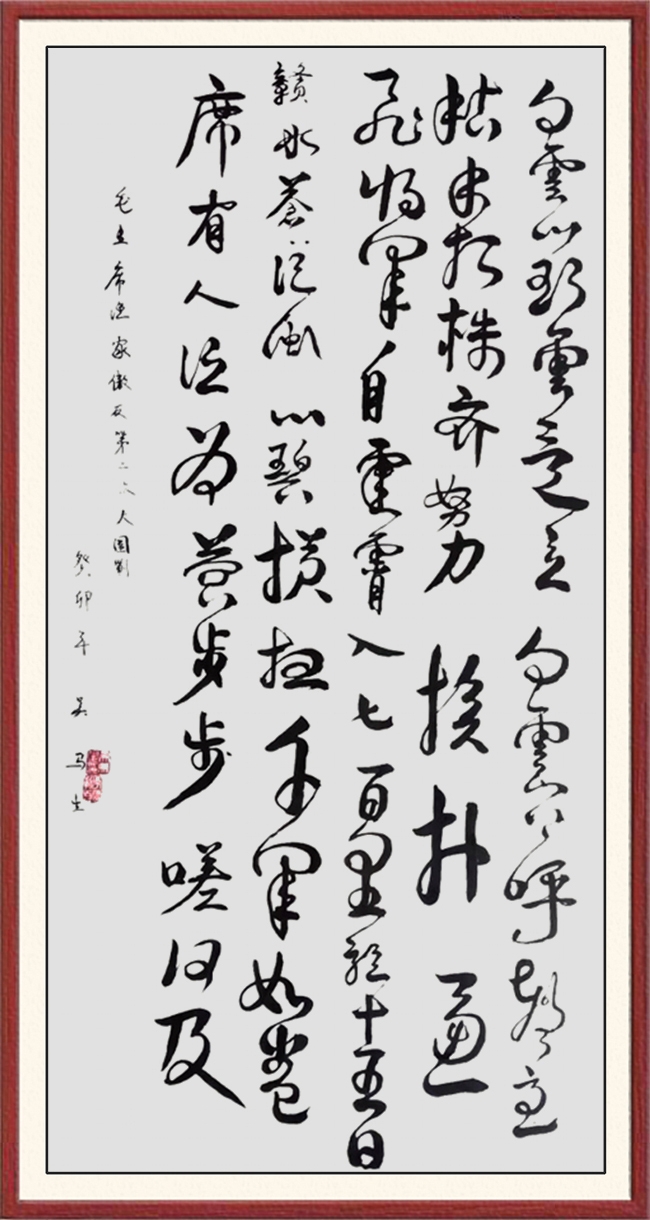 白雲山头雲欲立白雲山下呼声急
枯木朽株齐努力枪林逼
飞将军自重霄入七百里驱十五日
赣水苍茫闽山碧横扫千军如卷
席有人泣为营步步嗟何及
毛主席渔家傲反第二次大围剿
癸卯年 吴马生